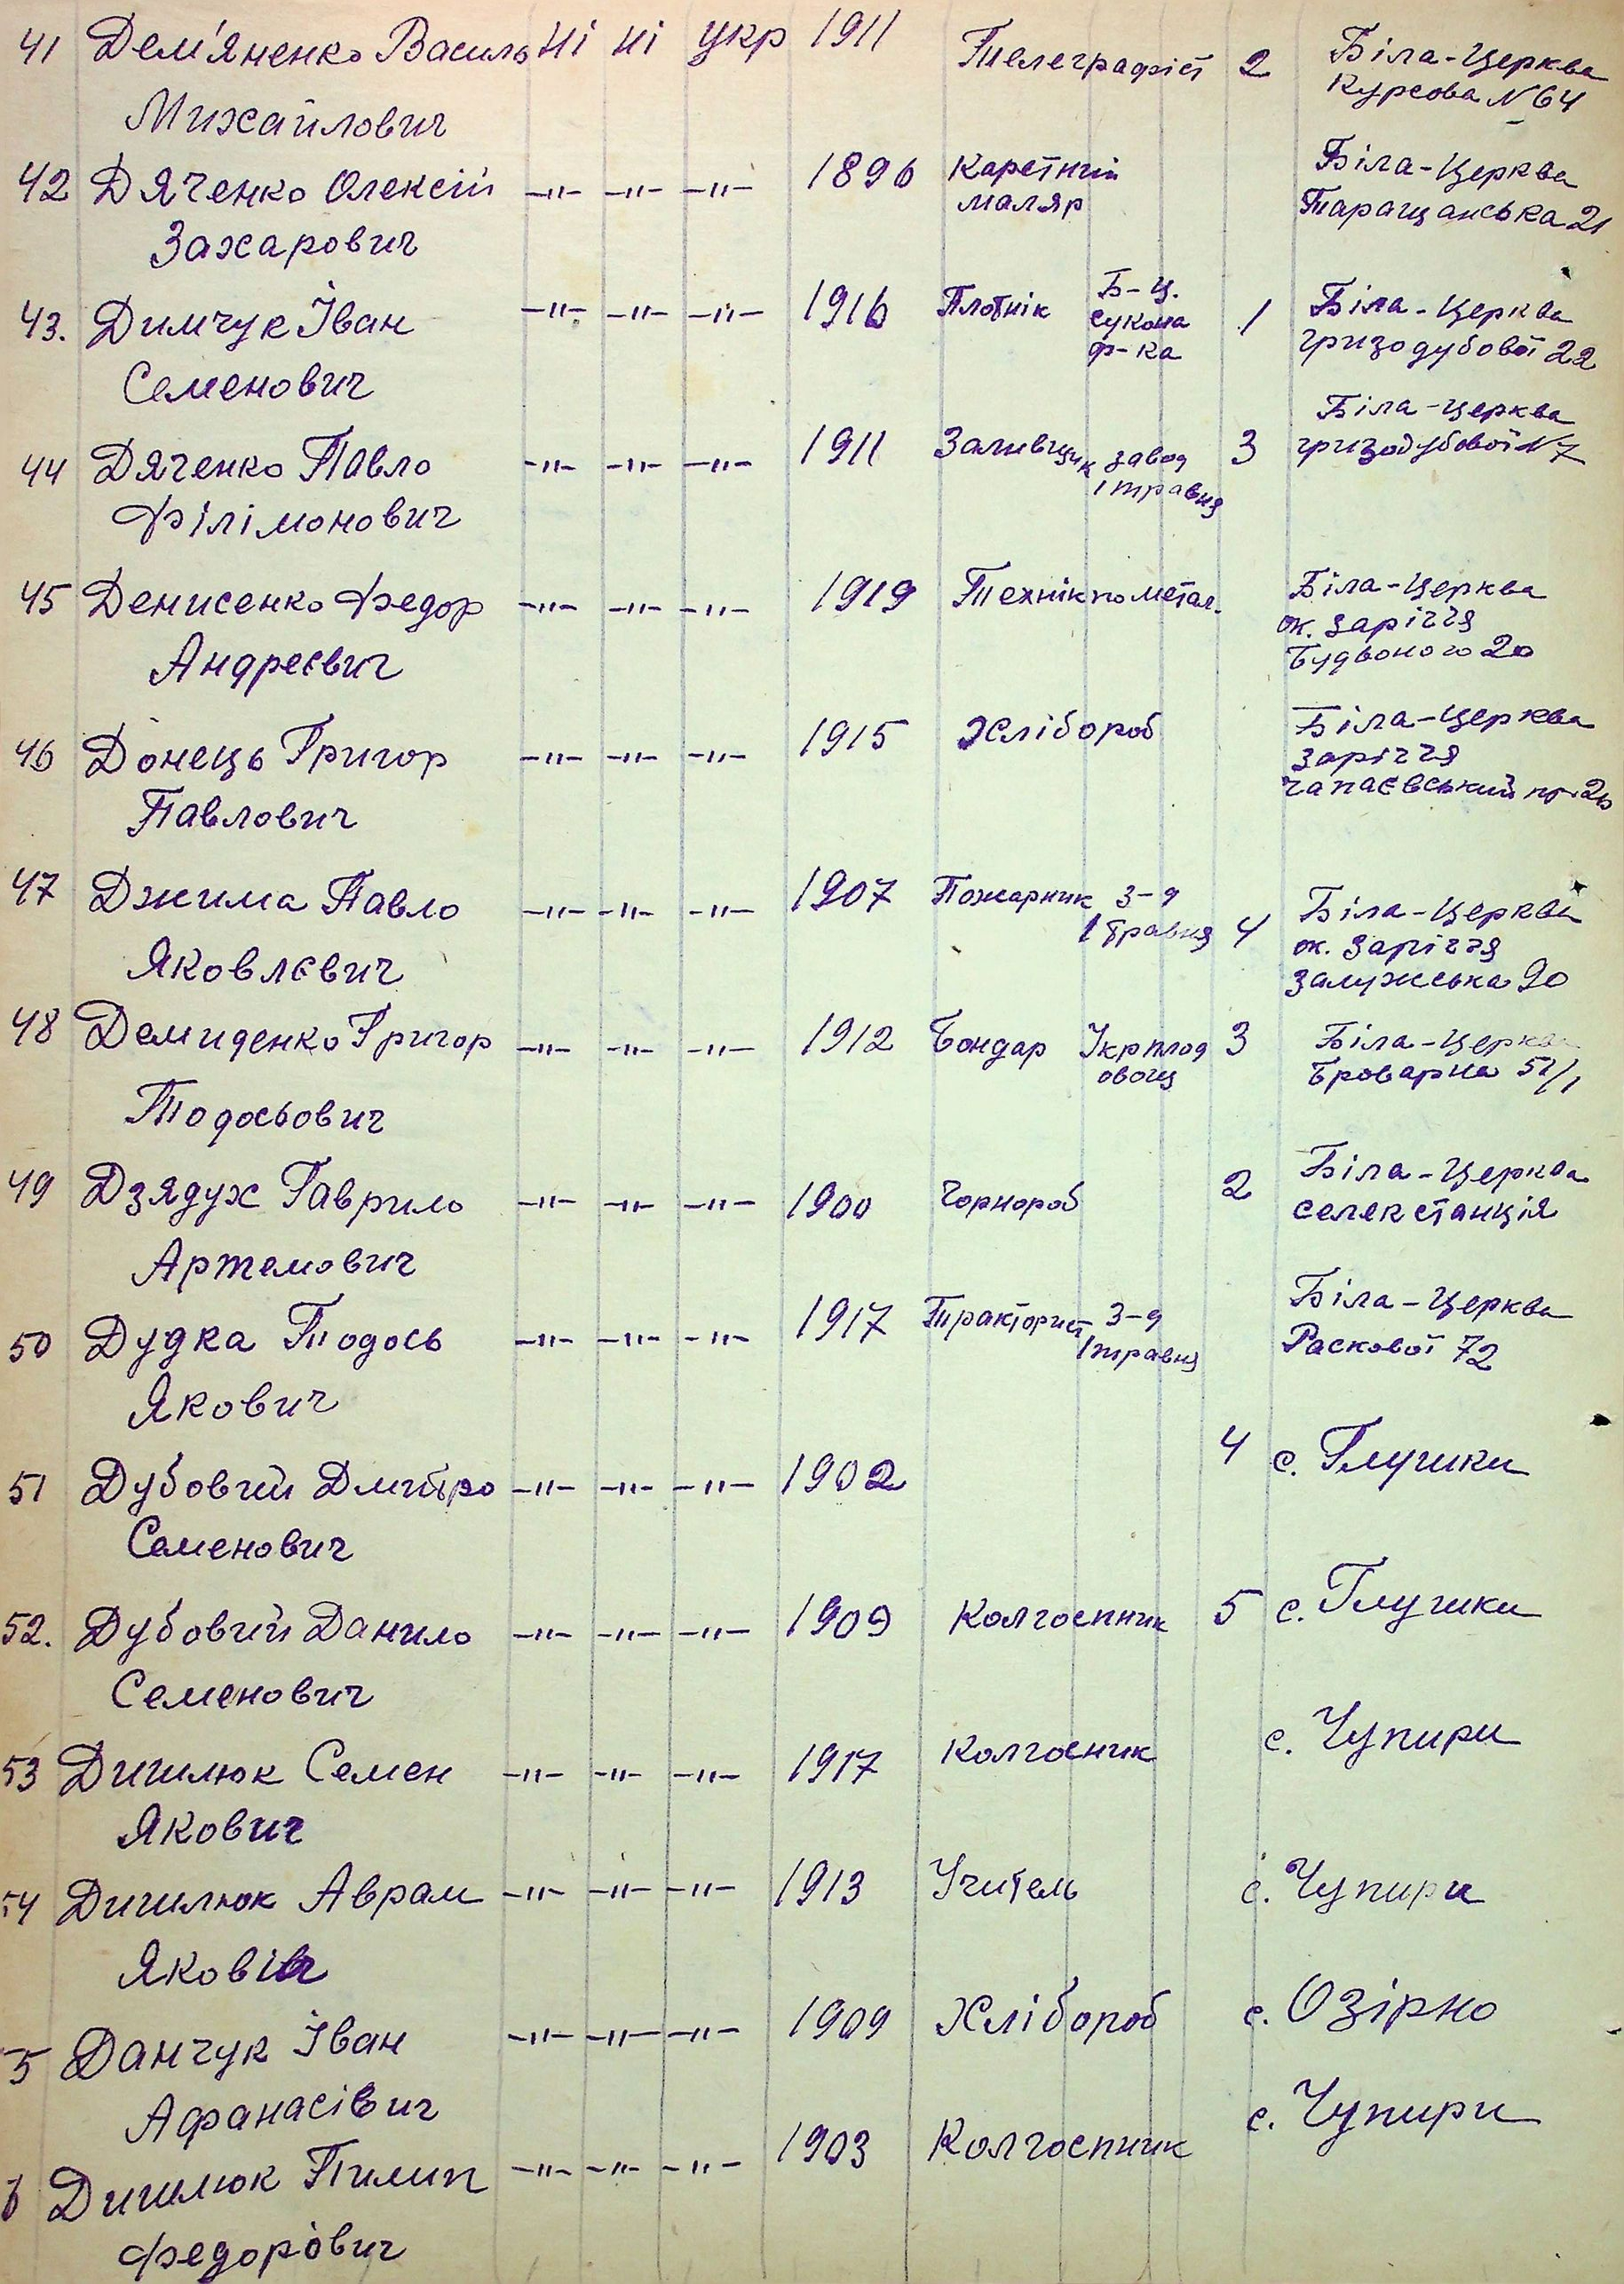 41 Дем'яненко Василь Ні ні укр 1911 Телеграфіст 2 Біла-Церква
Михайлович Курсова N 64
42 Дяченко Олексій —"— —"— —"— 1896 Каретний маляр Біла-Церква
Захарович Таращанська 21
43. Димчук Іван —"— —"— —"— 1916 Плотнік Б-Ц. сукона ф-ка 1 Біла-Церква
Семенович гризодубової 22
44 Дяченко Павло —"— —"— —"— 1911 Заливщик завод 1 травня 3 Біла-Церква
Філімонович гризодубової N 7
45 Денисенко Федор —"— —"— —"— 1919 Технік по метал. Біла-Церква
Андреєвич ок. заріччя
Будьоного 20
46 Донець Григор —"— —"— —"— 1915 Хлібороб Біла-Церква
Павлович заріччя
чапаєвський пр
47 Джима Павло —"— —"— —"— 1907 Пожарник З-д 1 травня 4 Біла-Церква
Яковлєвич ок. заріччя
залузська 90
48 Демиденко Григор —"— —"— —"— 1912 Бондар Укрплод овощ 3 Біла-Церква
Тодосьович Броварна 51/1
49 Дзядух Гаврило —"— —"— —"— 1900 Чорнороб 2 Біла-Церква
Артемович селекстанція
50 Дудка Тодось —"— —"— —"— 1917 Тракторист З-д 1 травня Біла-Церква
Якович Раскової 72
51 Дубовий Дмитро —"— —"— —"— 1902 4 с. Глушки
Семенович
52. Дубовий Данило —"— —"— —"— 1909 Колгоспник 5 с. Глушки
Семенович
53 Дишлюк Семен —"— —"— —"— 1917 Колгосник с. Чупири
Якович
54 Дишлюк Аврам —"— —"— —"— 1913 Учитель с. Чупири
5 Данчук Іван —"— —"— —"— 1909 Хлібороб с. Озірно
Афанасівич
Дишлюк Пилип —"— —"— —"— 1903 Колгоспник с. Чупири
Федорович